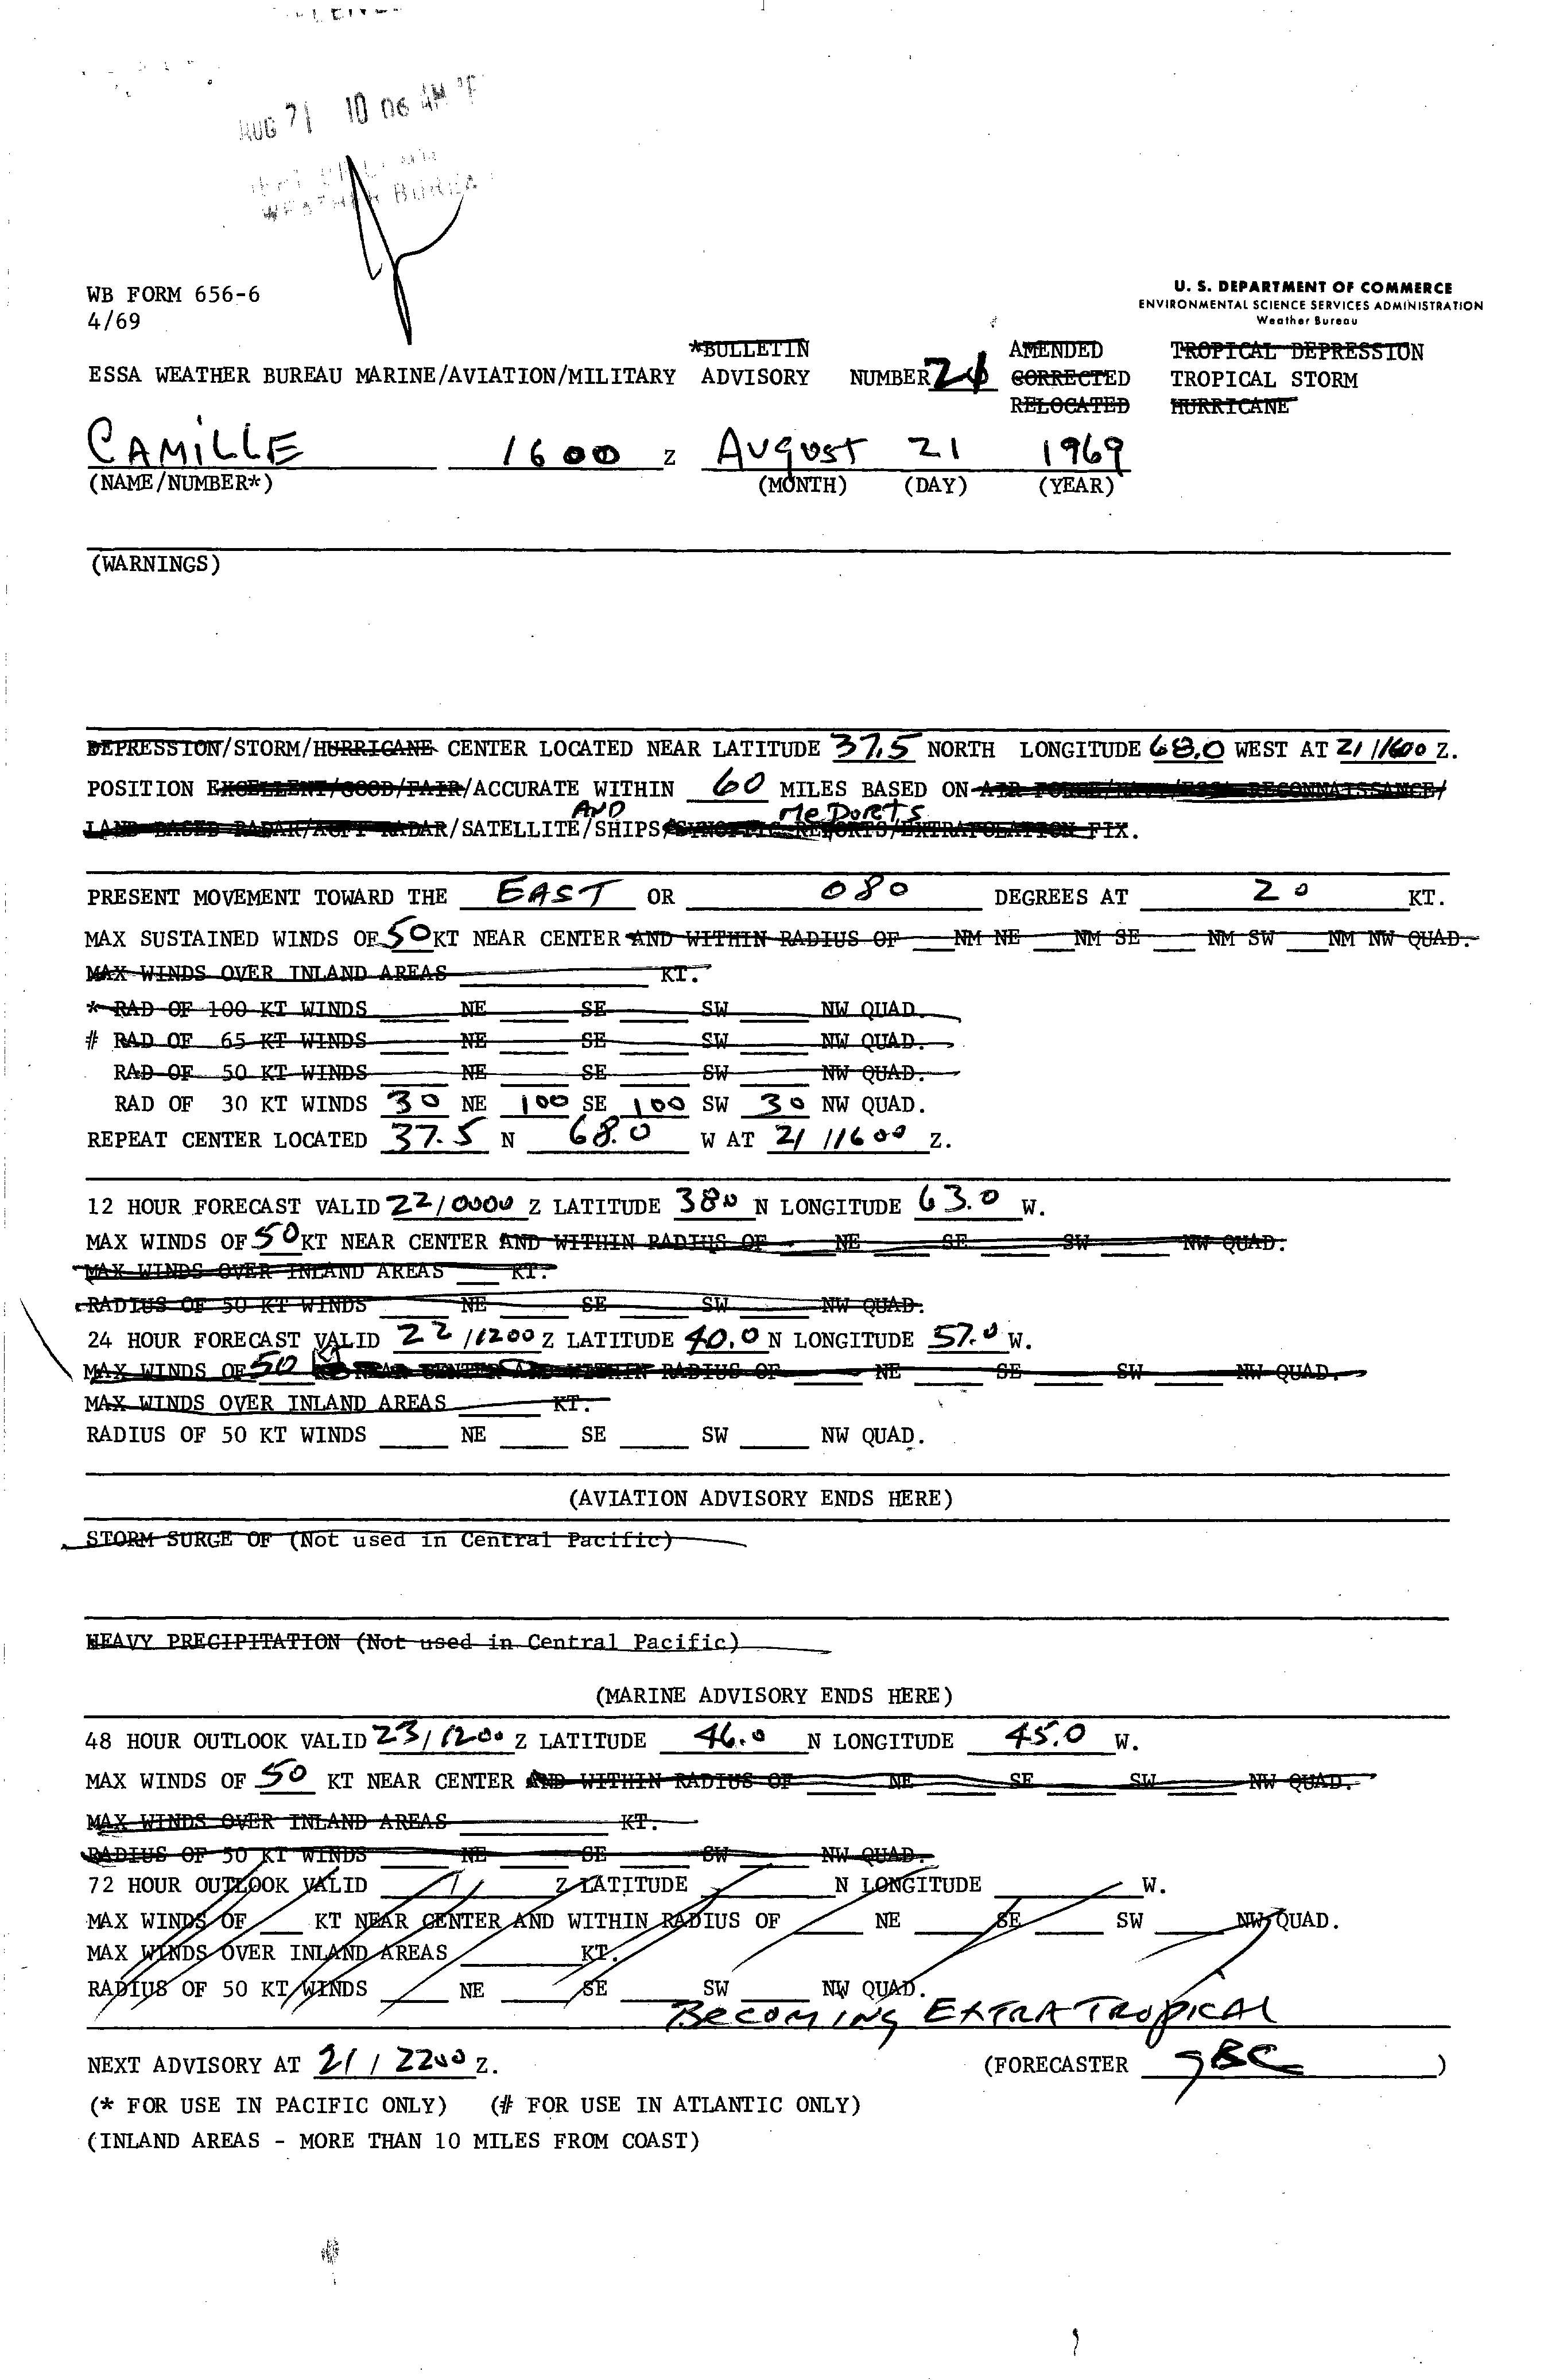 AUG 21 10 06 AM
WEATHER BUREA
WB FORM 656-6
4/69
U. S. DEPARTMENT OF COMMERCE
ENVIRONMENTAL SCIENCE SERVICES ADMINISTRATION
Weather Bureau
*BULLETIN AMENDED TROPICAL DEPRESSION
ESSA WEATHER BUREAU MARINE/AVIATION/MILITARY ADVISORY NUMBER CORRECTED TROPICAL STORM
RELOCATED HURRICANE
CAMILLE 1600 Z AUGUST 21 1969
(NAME/NUMBER*) (MONTH) (DAY) (YEAR)
(WARNINGS)
DEPRESSION/STORM/HURRICANE CENTER LOCATED NEAR LATITUDE 37.5 NORTH LONGITUDE 68.0 WEST AT 21/1600 Z.
POSITION EXCELLENT/GOOD/FAIR/ACCURATE WITHIN 60 MILES BASED ON AIR FORCE/NAVY/ESSA RECONNAISSANCE/
AND REPORTS
LAND BASED RADAR/ACFT RADAR/SATELLITE/SHIPS/SYNOPTIC REPORTS/EXTRAPOLATION FIX.
PRESENT MOVEMENT TOWARD THE EAST OR 080 DEGREES AT 20 KT.
MAX SUSTAINED WINDS OF 50 KT NEAR CENTER AND WITHIN RADIUS OF NM NE NM SE NM SW NM NW QUAD.
MAX WINDS OVER INLAND AREAS KT.
* RAD OF 100 KT WINDS NE SE SW NW QUAD.
# RAD OF 65 KT WINDS NE SE SW NW QUAD.
RAD OF 50 KT WINDS NE SE SW NW QUAD.
RAD OF 30 KT WINDS 30 NE 100 SE 100 SW 30 NW QUAD.
REPEAT CENTER LOCATED 37.5 N 68.0 W AT 21/1600 Z.
12 HOUR FORECAST VALID 22/0000 Z LATITUDE 380 N LONGITUDE 63.0 W.
MAX WINDS OF 50 KT NEAR CENTER AND WITHIN RADIUS OF NE SE SW NW QUAD.
MAX WINDS OVER INLAND AREAS KT.
RADIUS OF 50 KT WINDS NE SE SW NW QUAD.
24 HOUR FORECAST VALID 22/1200 Z LATITUDE 40.0 N LONGITUDE 57.0 W.
MAX WINDS OF 50 KT NEAR CENTER AND WITHIN RADIUS OF NE SE SW NW QUAD.
MAX WINDS OVER INLAND AREAS KT.
RADIUS OF 50 KT WINDS NE SE SW NW QUAD.
(AVIATION ADVISORY ENDS HERE)
STORM SURGE OF (Not used in Central Pacific)
HEAVY PRECIPITATION (Not used in Central Pacific)
(MARINE ADVISORY ENDS HERE)
48 HOUR OUTLOOK VALID 23/1200 Z LATITUDE 46.0 N LONGITUDE 45.0 W.
MAX WINDS OF 50 KT NEAR CENTER AND WITHIN RADIUS OF NE SE SW NW QUAD.
MAX WINDS OVER INLAND AREAS KT.
RADIUS OF 50 KT WINDS NE SE SW NW QUAD.
72 HOUR OUTLOOK VALID / Z LATITUDE N LONGITUDE W.
MAX WINDS OF KT NEAR CENTER AND WITHIN RADIUS OF NE SE SW NW QUAD.
MAX WINDS OVER INLAND AREAS KT.
RADIUS OF 50 KT WINDS NE SE SW NW QUAD.
BECOMING EXTRATROPICAL
NEXT ADVISORY AT 21/2200 Z. (FORECASTER GBC)
(* FOR USE IN PACIFIC ONLY) (# FOR USE IN ATLANTIC ONLY)
(INLAND AREAS - MORE THAN 10 MILES FROM COAST)